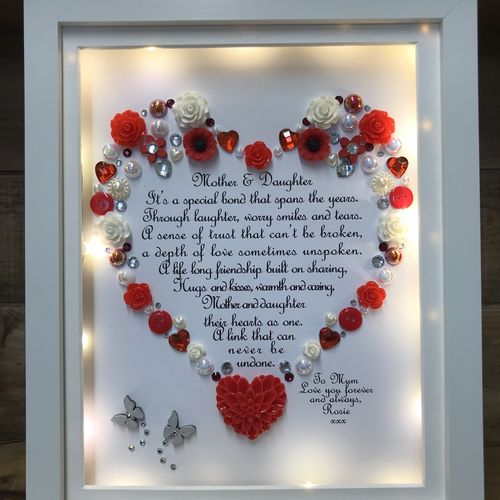 Mother & Daughter
It's a special bond that spans the years.
Through laughter, worry smiles and tears.
A sense of trust that can't be broken,
a depth of love sometimes unspoken.
A life long friendship built on sharing,
Hugs and kisses, warmth and caring,
Mother and daughter
their hearts as one.
A link that can
never be
undone.
To Mum
Love you forever
and always,
Rosie
xxx